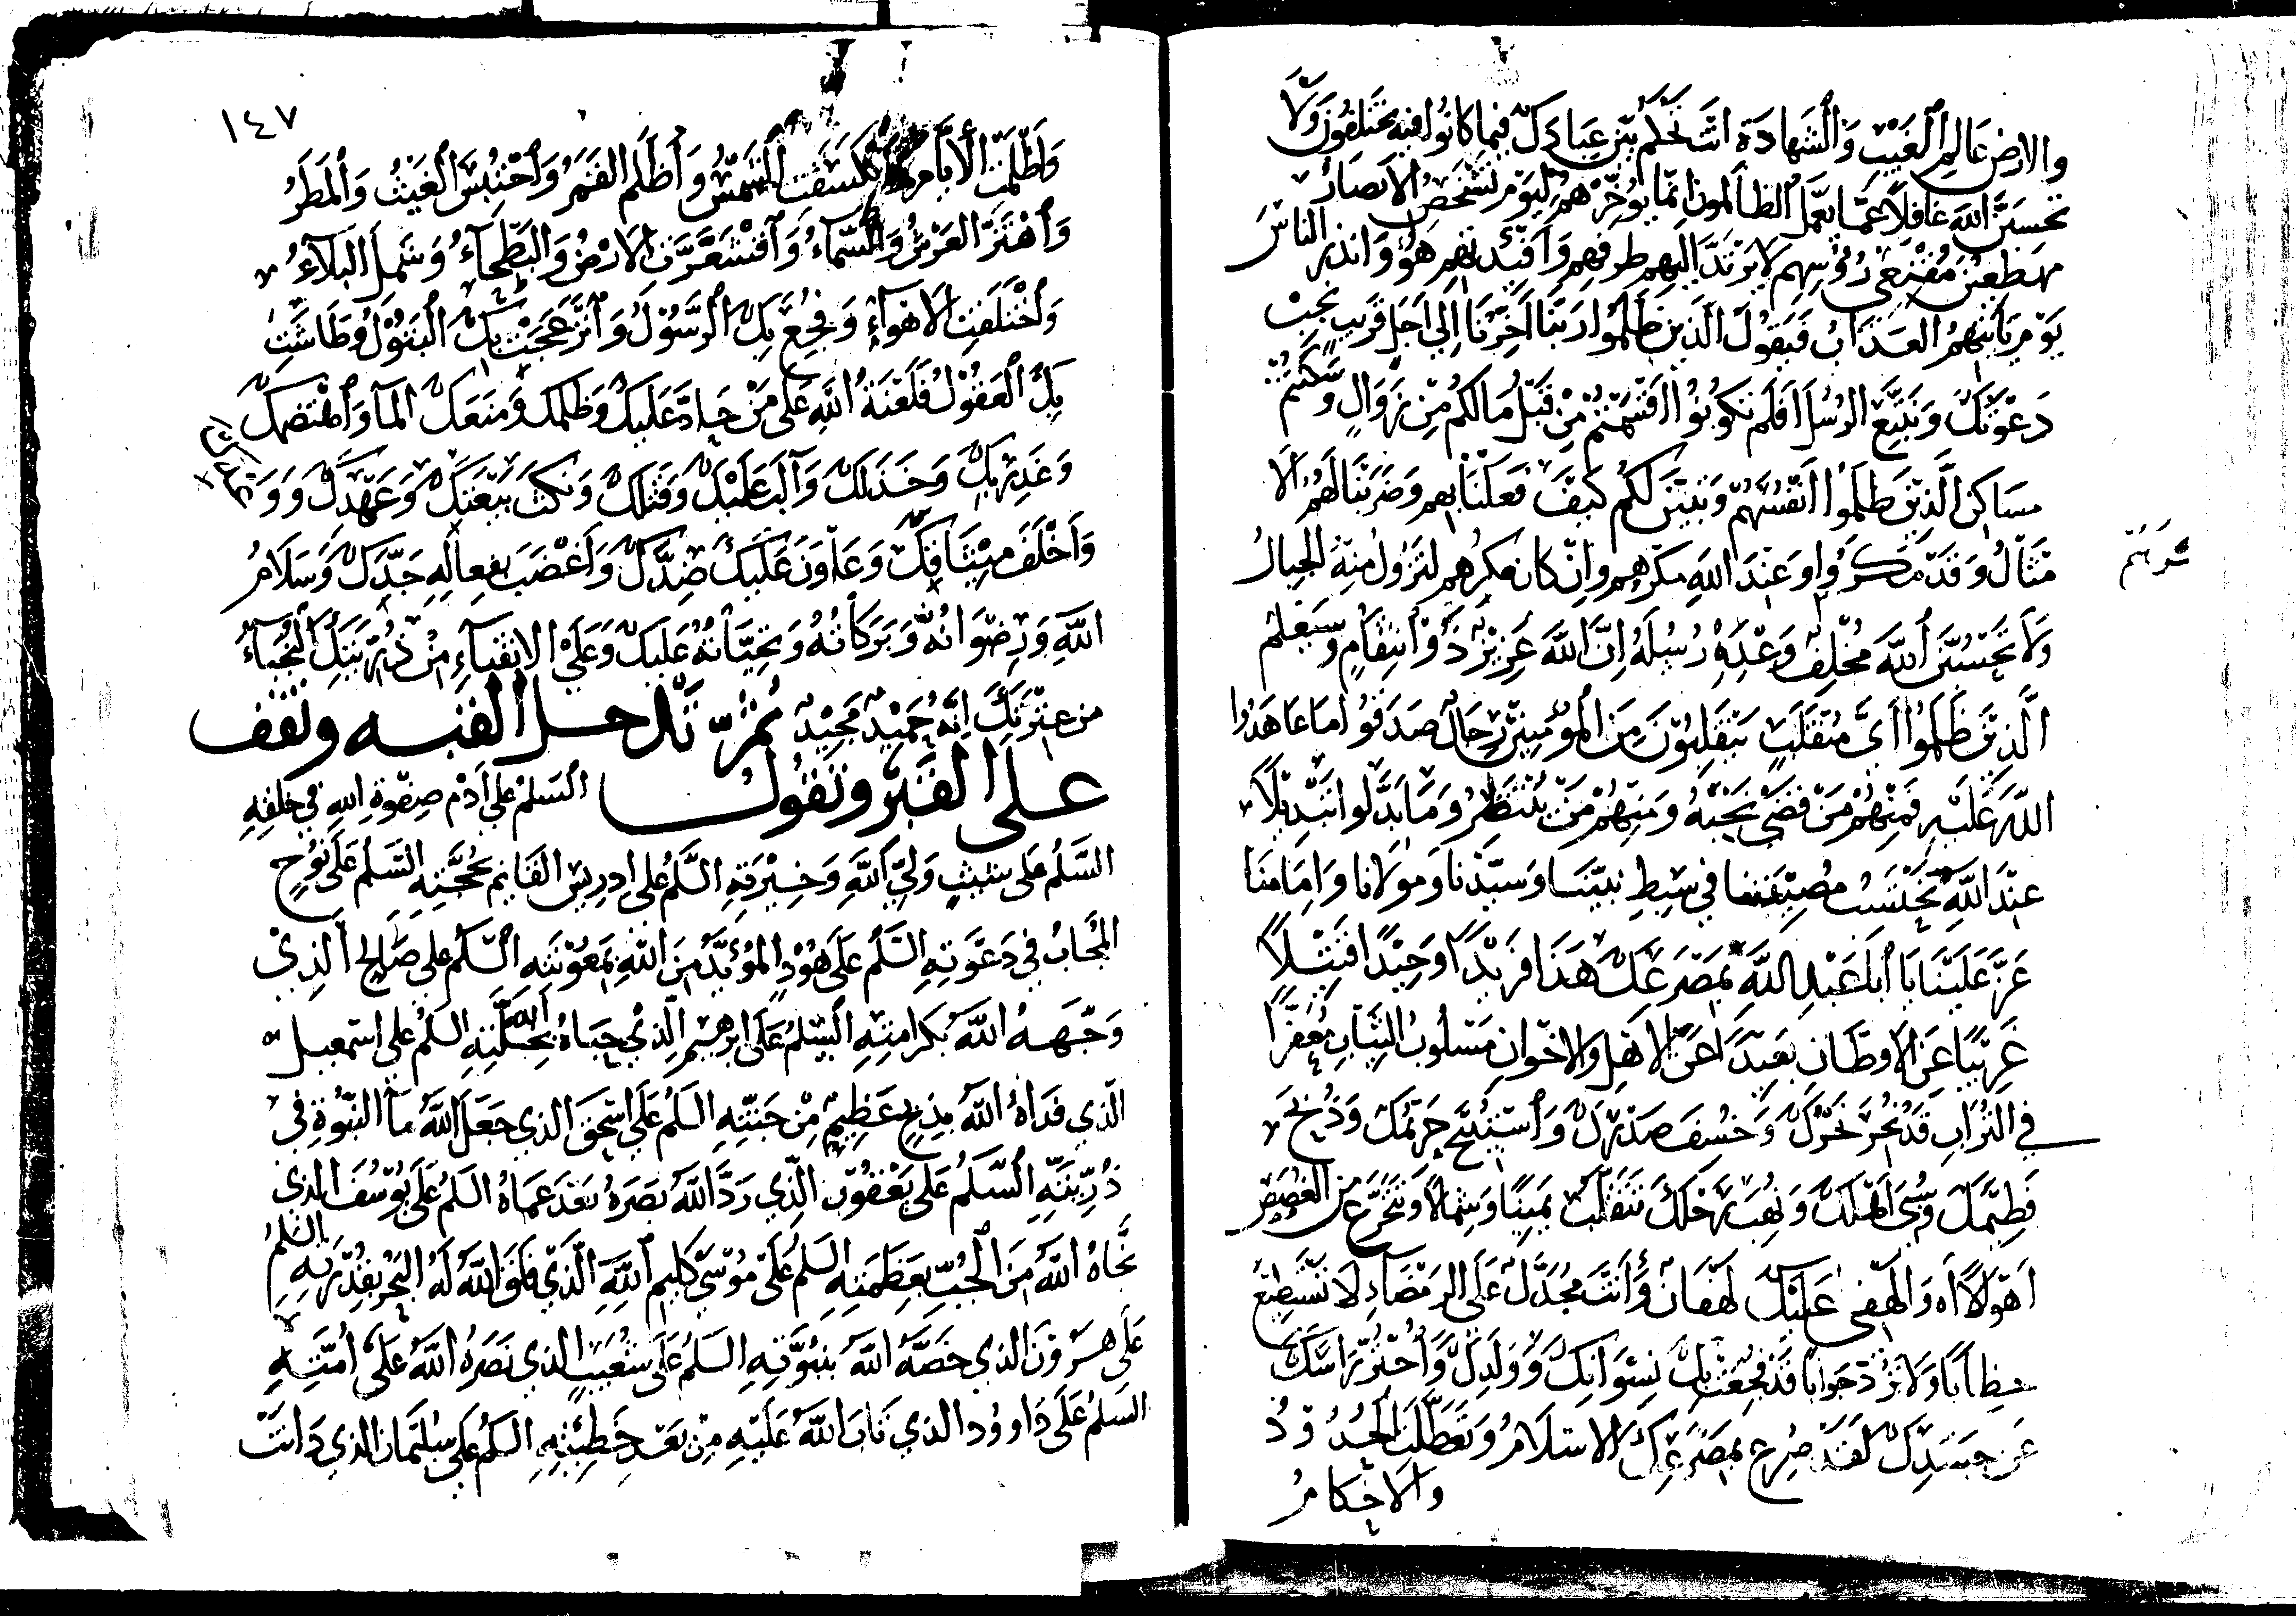 والارض عَالِمِ الْغَيْبِ وَالشَهادَة انتَ تحْكُم بَيْن عِبَادِكَ فيمَا كانُوا فيه يختلفُون وَلَا
تحْسَبَنَّ اللهَ غافِلًا عمَّا يعْمَل الظالمون انمَا يؤخّرُهُمْ ليَوْمٍ تشخَصُ الابْصَارُ
مهطعِينَ مقْنعِى رُؤسِهِم لايَرْتدّ اليهِم طرفهم وَافئدتهم هوَآء وَانذِرِ الناسَ
يَوْمَ يَأتيهمُ العَذَابُ فَيَقُولُ الذينَ ظلَمُوا ربَّنَا اخِّرْنَا الي اجَلٍ قَريبٍ نجِبْ
دَعْوَتَكَ وَنتَّبِعِ الرسُلَ اوَلم تكُونُوا اقْسَمْتمْ مِنْ قَبْل مَالكمْ مِنْ زوَالٍ وَسَكنتُمْ
مسَاكِنَ الَّذِينَ ظلَمُوا انْفُسَهُمْ وَتبَيَّن لكُم كيْفَ فعَلنا بهم وَضرَبنا لكُم الا
مْثَالُ وَقدْ مَكَرُوا وعِنْدَ اللهِ مكْرُهم وَانْ كانَ مكرُهم لتزُول منهُ الجِبالُ
مكرهُم
وَلا تَحْسَبَنَّ اللهَ مخْلِفَ وَعْدِهِ رُسُلَهُ اِنَّ اللهَ عَزيزٌ ذُو انتِقامٍ وسَيَعْلمُ
الَّذِينَ ظَلَمُوا اَيَّ مُنْقَلَبٍ يَنْقَلِبُونَ مِنَ المُؤْمِنينَ رِجَالٌ صَدَقُوا مَا عَاهَدُوا
اللهَ عَلَيْهِ فَمِنْهُمْ مَنْ قَضَى نحْبَهُ وَمِنْهُمْ مَنْ يَنْتَظِرُ وَمَا بَدَّلوا تَبْدِيلًا
عِنْدَ اللهِ نحْتَسِبُ مصِيبتنَا في سِبْطِ نبيّنَا وَسيّدنَا وَموْلانَا وَامَامِنَا
عَزَّ عَلَيْنَا يَا أبَا عَبْدِ اللهِ بمَصْرَعِكَ هَذا فرِيْدًا وَحِيْدًا قتِيْلًا
غَرِيْبًا عَنِ الاوطَان بَعِيْدًا عَنِ الاهْلِ وَالاخْوَانِ مَسْلُوبُ الثِيَابِ مُعفَّرًا
في التُرَابِ قَدْ نُحِرَ نَحْرُكَ وَخُسِفَ صَدْرُكَ وَاسْتُبِيْحَ حَرِيمُكَ وَذُبِحَ
فَطِيْمُكَ وَسُبِيَ اَهْلُكَ وَنُهِبَ رَحْلُكَ تَتَقَلَّبُ يَمِيْنًا وَشِمَالًا وَتَتَجَرَّعُ مِنَ الغُصَصِ
اَهْوَالًا آه وَالَهْفِي عَلَيْكَ لَهْفَانَ وَأَنْتَ مُجَدَّلٌ عَلَى الرَمْضَآءِ لَا تسْتَطِيْعُ
خِطَابًا وَلَا ترُدُّ جوَابًا قَدْ فُجِعَتْ بِكَ نِسْوَانُكَ وَوَلَدُكَ وَاحْتُزَّ رَاسُكَ
عَنْ جَسَدِكَ لَقَدْ صُرِعَ بمَصْرَعِكَ الاسْلَامُ وَتعَطَّلتِ الحُدُودُ
والاحْكامُ
١٤٧
وَاظْلَمَتِ الأيَّامُ وَانكسَفَتِ الشَّمْسُ وَأظْلَمَ القَمَرُ وَاحْتُبِسَ الغَيْثُ وَالمَطَرُ
وَاهْتَزَّ العَرْشُ وَالسَّمَآءُ وَاقْشَعَرَّتِ الارْضُ وَالبَطْحَآءُ وَشمِلَ البَلَآءُ
وَاخْتَلَفَتِ الاهْوَآءُ وَفُجِعَ بِكَ الرَّسُوْلُ وَانْزَعَجَتْ بِكَ البَتُوْلُ وَطَاشَتْ
بِكَ العُقُوْلُ فَلَعْنَةُ اللهِ عَلَى مَنْ جَارَ عَلَيْكَ وَظلَمَكَ وَمَنَعَكَ المَآءَ وَاهْتَضَمَكَ
وَغَدَرَ بِكَ وَخَذَلَكَ وَأَلَّبَ عَلَيْكَ وَقَتلَكَ وَنكَثَ بَيْعَتَكَ وَعَهْدَكَ وَوَ
وَأَخْلَفَ مِيْثَاقَكَ وَعَاوَنَ عَلَيْكَ ضِدَّكَ وَاَغْضَبَ بفِعَالِهِ جَدَّكَ وَسَلَامُ
اللهِ وَرِضْوَانُهُ وَبَرَكَاتُهُ وَتَحِيَّاتُهُ عَلَيْكَ وَعَلَى الاتْقِيَآءِ مِنْ ذُرِّيَتِكَ النُجَبَآءِ
من عِتْرَتِكَ اِنَّهُ حَمِيْدٌ مَجِيْدٌ ثمّ تدخل القبه وتقف
على القبر وتقول السَلمُ على أدَمَ صِفْوَةِ اللهِ في خلقِهِ
السَّلمُ عَلى شيثٍ وَليّ اللهِ وَخِيْرَتِهِ السَّلمُ عَلى ادرِيسَ القَايم بحُجَّتِهِ السَلمُ عَلى نوُحٍ
المُجَابِ في دَعْوَتِهِ السَّلمُ عَلى هُوْدٍ المُؤيَّدِ مِنَ اللهِ بمَعُوْنَتِهِ السَّلمُ على صَالِحٍ الذِيْ
وَجَّهَهُ اللهُ بكَرَامَتِهِ السَّلمُ عَلى ابرهيم الَّذِيْ حَبَاهُ اللهُ بخلَّتِهِ السَلمُ على اسمَعيل
الَّذِي فدَاهُ اللهُ بِذِبْحٍ عَظِيْمٍ مِنْ جَنَّتِهِ السَلمُ عَلى اسْحَقَ الَّذي جَعَلَ اللهُ النُبُوَّةَ في
ذُرِّيتِهِ السَّلَمُ عَلى يَعْقُوبَ الَّذِي رَدَّ اللهُ بَصَرَهُ بَعْدَ عَمَاهُ السَلمُ عَلى يُوْسُفَ الذي
نجَّاهُ اللهُ مِنَ الجُبِّ بعَظَمَتِهِ السَلمُ عَلَى مُوْسَى كليمِ اللهِ الَّذِيْ فلَقَ اللهُ لَهُ البَحْرَ بقُدْرَتِهِ السَلمُ
عَلَى هَرُوْنَ الذي خَصَّهُ اللهُ بنُبُوَّتِهِ السَلمُ عَلى شُعَيْبٍ الذي نَصَرَهُ اللهُ عَلَى أُمَّتِهِ
السَلمُ عَلَى دَاوودَ الذي تَابَ اللهُ عَلَيْهِ مِنْ بَعْدِ خَطِيْئتِهِ السَلمُ عَلى سُلَيْمَانَ الذي دَانَتْ